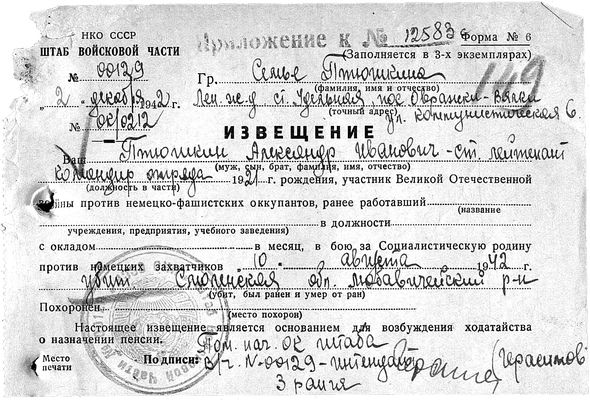 НКО СССР
Приложение к № 12583
Форма № 6
ШТАБ ВОЙСКОВОЙ ЧАСТИ
(Заполняется в 3-х экземплярах)
№ 00129
Гр. Семье Птюшкина
149
(фамилия, имя и отчество)
2 декабря 1942 г.
Лен. ж.д. ст. Удельная, пос.
(точный адрес)
ул. Коммунистическая 6.
№ ОК/0212
ИЗВЕЩЕНИЕ
Ваш Птюшкин Александр Иванович - ст. лейтенант
(муж, сын, брат, фамилия, имя, отчество)
командир отряда 1921 г. рождения, участник Великой Отечественной
(должность в части)
войны против немецко-фашистских оккупантов, ранее работавший
(название
в должности
учреждения, предприятия, учебного заведения)
с окладом в месяц, в бою за Социалистическую родину
против немецких захватчиков 10 августа 1942 г.
убит Смоленская обл. р-н
(убит, был ранен и умер от ран)
Похоронен
(место похорон)
Настоящее извещение является основанием для возбуждения ходатайства
о назначении пенсии.
Пом. нач. ОК штаба
Место
печати
Подписи: в/ч. N-00129 - интендант
(Герасимов
3 ранга